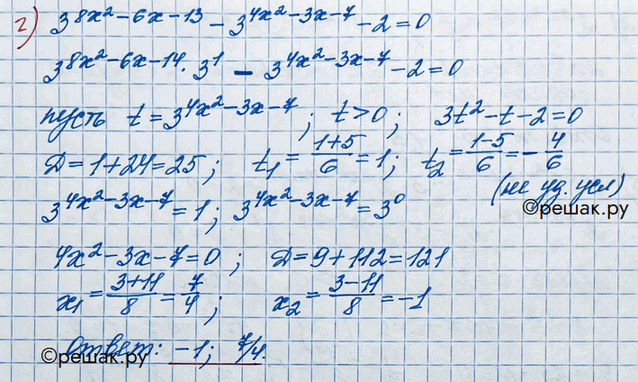 2) 3^{8x²-6x-13} - 3^{4x²-3x-7} - 2 = 0
3^{8x²-6x-14} · 3^1 - 3^{4x²-3x-7} - 2 = 0
пусть t = 3^{4x²-3x-7}; t > 0; 3t² - t - 2 = 0
D = 1 + 24 = 25; t₁ = \frac{1+5}{6} = 1; t₂ = \frac{1-5}{6} = -\frac{4}{6}
(не уд. усл)
©решак.ру
3^{4x²-3x-7} = 1; 3^{4x²-3x-7} = 3^0
4x² - 3x - 7 = 0; D = 9 + 112 = 121
x₁ = \frac{3+11}{8} = \frac{7}{4}; x₂ = \frac{3-11}{8} = -1
Ответ: -1; 7/4.
©решак.ру